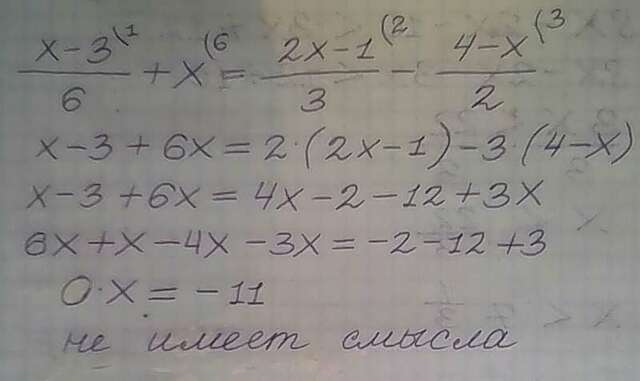 (x-3)/6 (1 + x (6 = (2x-1)/3 (2 - (4-x)/2 (3
x-3+6x=2·(2x-1)-3·(4-x)
x-3+6x=4x-2-12+3x
6x+x-4x-3x=-2-12+3
0·x=-11
не имеет смысла